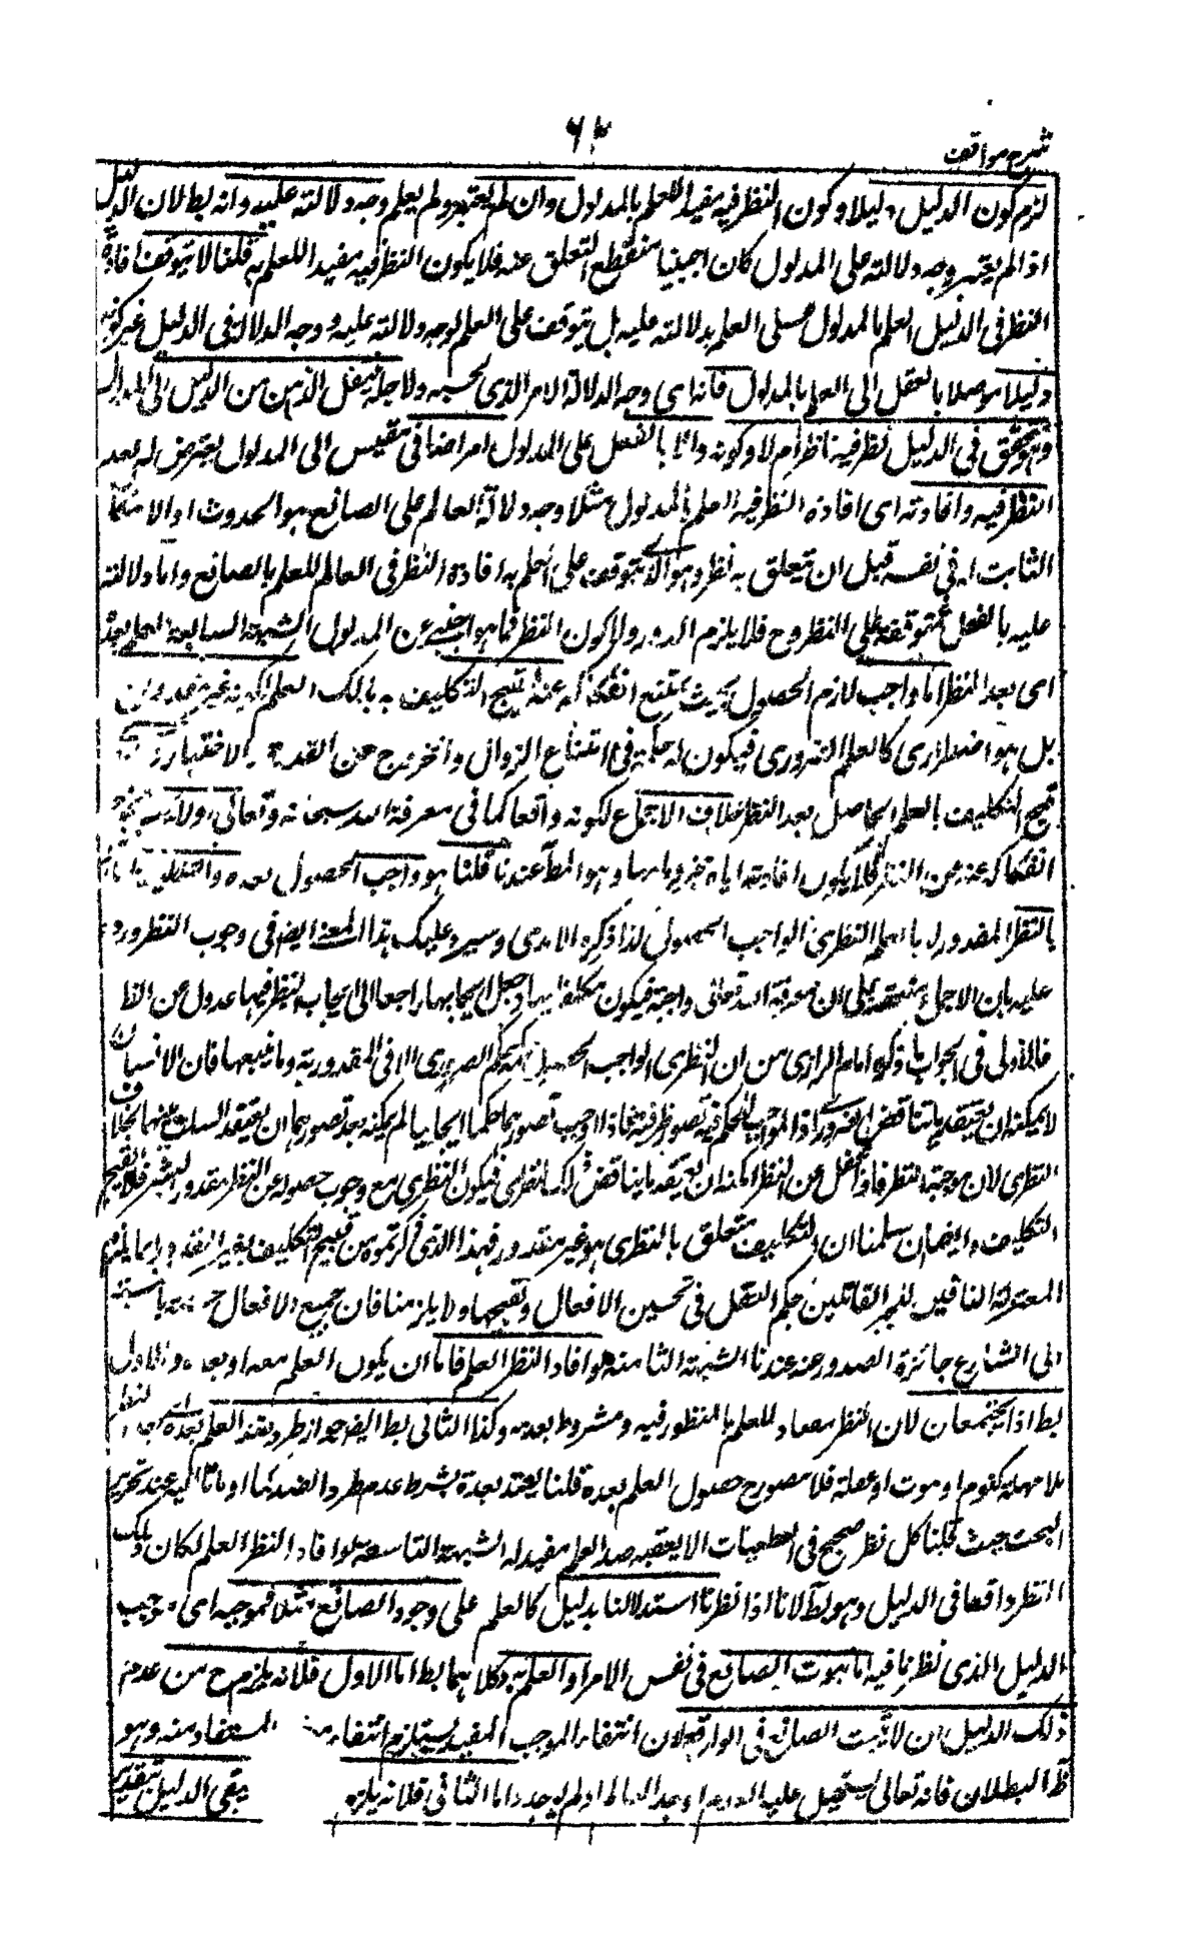 ٦٣
شرح مواقف
لزم كون الدليل دليلا وكون النظر فيه مفيدا للعلم بالمدلول وان لم يعتبر ولم يعلم وجه دلالته عليه وانه بط لان الدليل
اذا لم يعتبر وجه دلالته على المدلول كان اجنبيا منقطع التعلق عنه فلا يكون النظر فيه مفيدا للعلم به قلنا لا يتوقف افادة
النظر فى الدليل العلم بالمدلول على العلم بدلالته عليه بل يتوقف على العلم بوجه دلالته عليه ووجه الدلالة فى الدليل غير كونه
دليلا موصلا بالعقل الى العلم بالمدلول فانه اى وجه الدلالة الامر الذى بحسبه ولاجله ينتقل الذهن من الدليل الى المدلول
وهو متحقق فى الدليل نظر فيه ناظر ام لا وكونه دالا بالفعل على المدلول امر اضافى مقيس الى المدلول يعترض له بعد
النظر فيه وافادته اى افادة النظر فيه العلم بالمدلول مثلا وجه دلالة العالم على الصانع هو الحدوث او الامكان
الثابت له فى نفسه قبل ان يتعلق به نظر وهو الذى يتوقف على العلم به افادة النظر فى العالم للعلم بالصانع واما دلالته
عليه بالفعل فمتوقفة على النظر وح فلا يلزم الدور ولا كون النظر فيما هو اجنبى عن المدلول الشبهة السابعة العلم بعده
اى بعد النظر اما واجب لازم الحصول بحيث يمتنع انفكاكه عنه فيقبح التكليف به بذلك العلم لكونه غير مقدور
بل هو اضطرارى كالعلم الضرورى فيكون له حكمه فى امتناع الزوال والخروج عن القدرة والاختيار
قبح التكليف بالعلم الحاصل بعد النظر خلاف الاجماع لكونه واقعا كما فى معرفة الله سبحانه وتعالى اولا
انفكاكه عنه عن النظر فلا يكون افادته اياه مجزوما بها وهو المط عندنا قلنا هو واجب الحصول بعده والتكليف انما
بالنظر المقدور لا بالعلم النظرى الواجب الحصول كذا ذكره الآمدى وسيرد عليك هذا المعنى ايضا فى وجوب النظر ورد
عليه بان الاجماع منعقد على ان معرفة الله تعالى واجبة فيكون مكلفا بها وجعل ايجابها راجعا الى ايجاب النظر فيها عدول عن الظا
فالاولى فى الجواب ما ذكره امام الرازى من ان النظرى الواجب الحصول حكمه حكم الضرورى الا فى المقدورية وما يتبعها فان الانسان
لا يمكنه ان يعتقد ما يناقض الضرورى اذا لموجب للحكم فيه تصور طرفيه فاذا اوجب تصورهما حكما ايجابيا لم يمكنه بعد تصورهما ان يعتقد السلب بينهما بخلاف
النظرى لان موجبه النظر فاذا غفل عن النظر امكنه ان يعتقد ما يناقض ذلك النظرى فيكون النظرى مع وجوب حصوله عن النظر مقدورا للبشر فلا يقبح
التكليف به وايضا ان سلمنا ان التكليف متعلق بالنظرى وهو غير مقدور فهذا الذى ذكرتموه من قبح التكليف بغير المقدور انما يلزم
المعتزلة النافين للجبر القائلين بحكم العقل فى تحسين الافعال وتقبيحها ولا يلزمنا فان جميع الافعال حسنة بالنسبة
الى الشارع جائزة الصدور عنه عندنا الشبهة الثامنة لو افاد النظر العلم فاما ان يكون العلم معه او بعده والاول
بط اذ لا يجتمعان لان النظر مضاد للعلم بالمنظور فيه ومشروط بعدمه وكذا الثانى بط ايضا لجواز طرو ضد العلم بعده اى بعد النظر
بلا مهلة كنوم او موت او غفلة فلا يتصور ح حصول العلم بعده قلنا يفيده بعده بشرط عدم طرو الضد كما اومانا اليه عند تحرير
البحث حيث قلنا كل نظر صحيح فى القطعيات لا يعقبه ضد العلم مفيد له الشبهة التاسعة لو افاد النظر العلم لكان ذلك
النظر واقعا فى الدليل وهو بط لانا اذا نظرنا استدلالنا بدليل كالعلم على وجود الصانع مثلا فموجبه اى موجب
الدليل الذى نظر فيه اما ثبوت الصانع فى نفس الامر او العلم به وكلاهما بط اما الاول فلانه يلزم ح من عدم
ذلك الدليل ان لا يثبت الصانع فى الواقع لان انتفاء الموجب المفيد يستلزم انتفاء المستفاد منه وهو
ظ البطلان فانه تعالى يستحيل عليه العدم وجد العالم او لم يوجد واما الثانى فلانه يلزم يبقى الدليل بتقدير